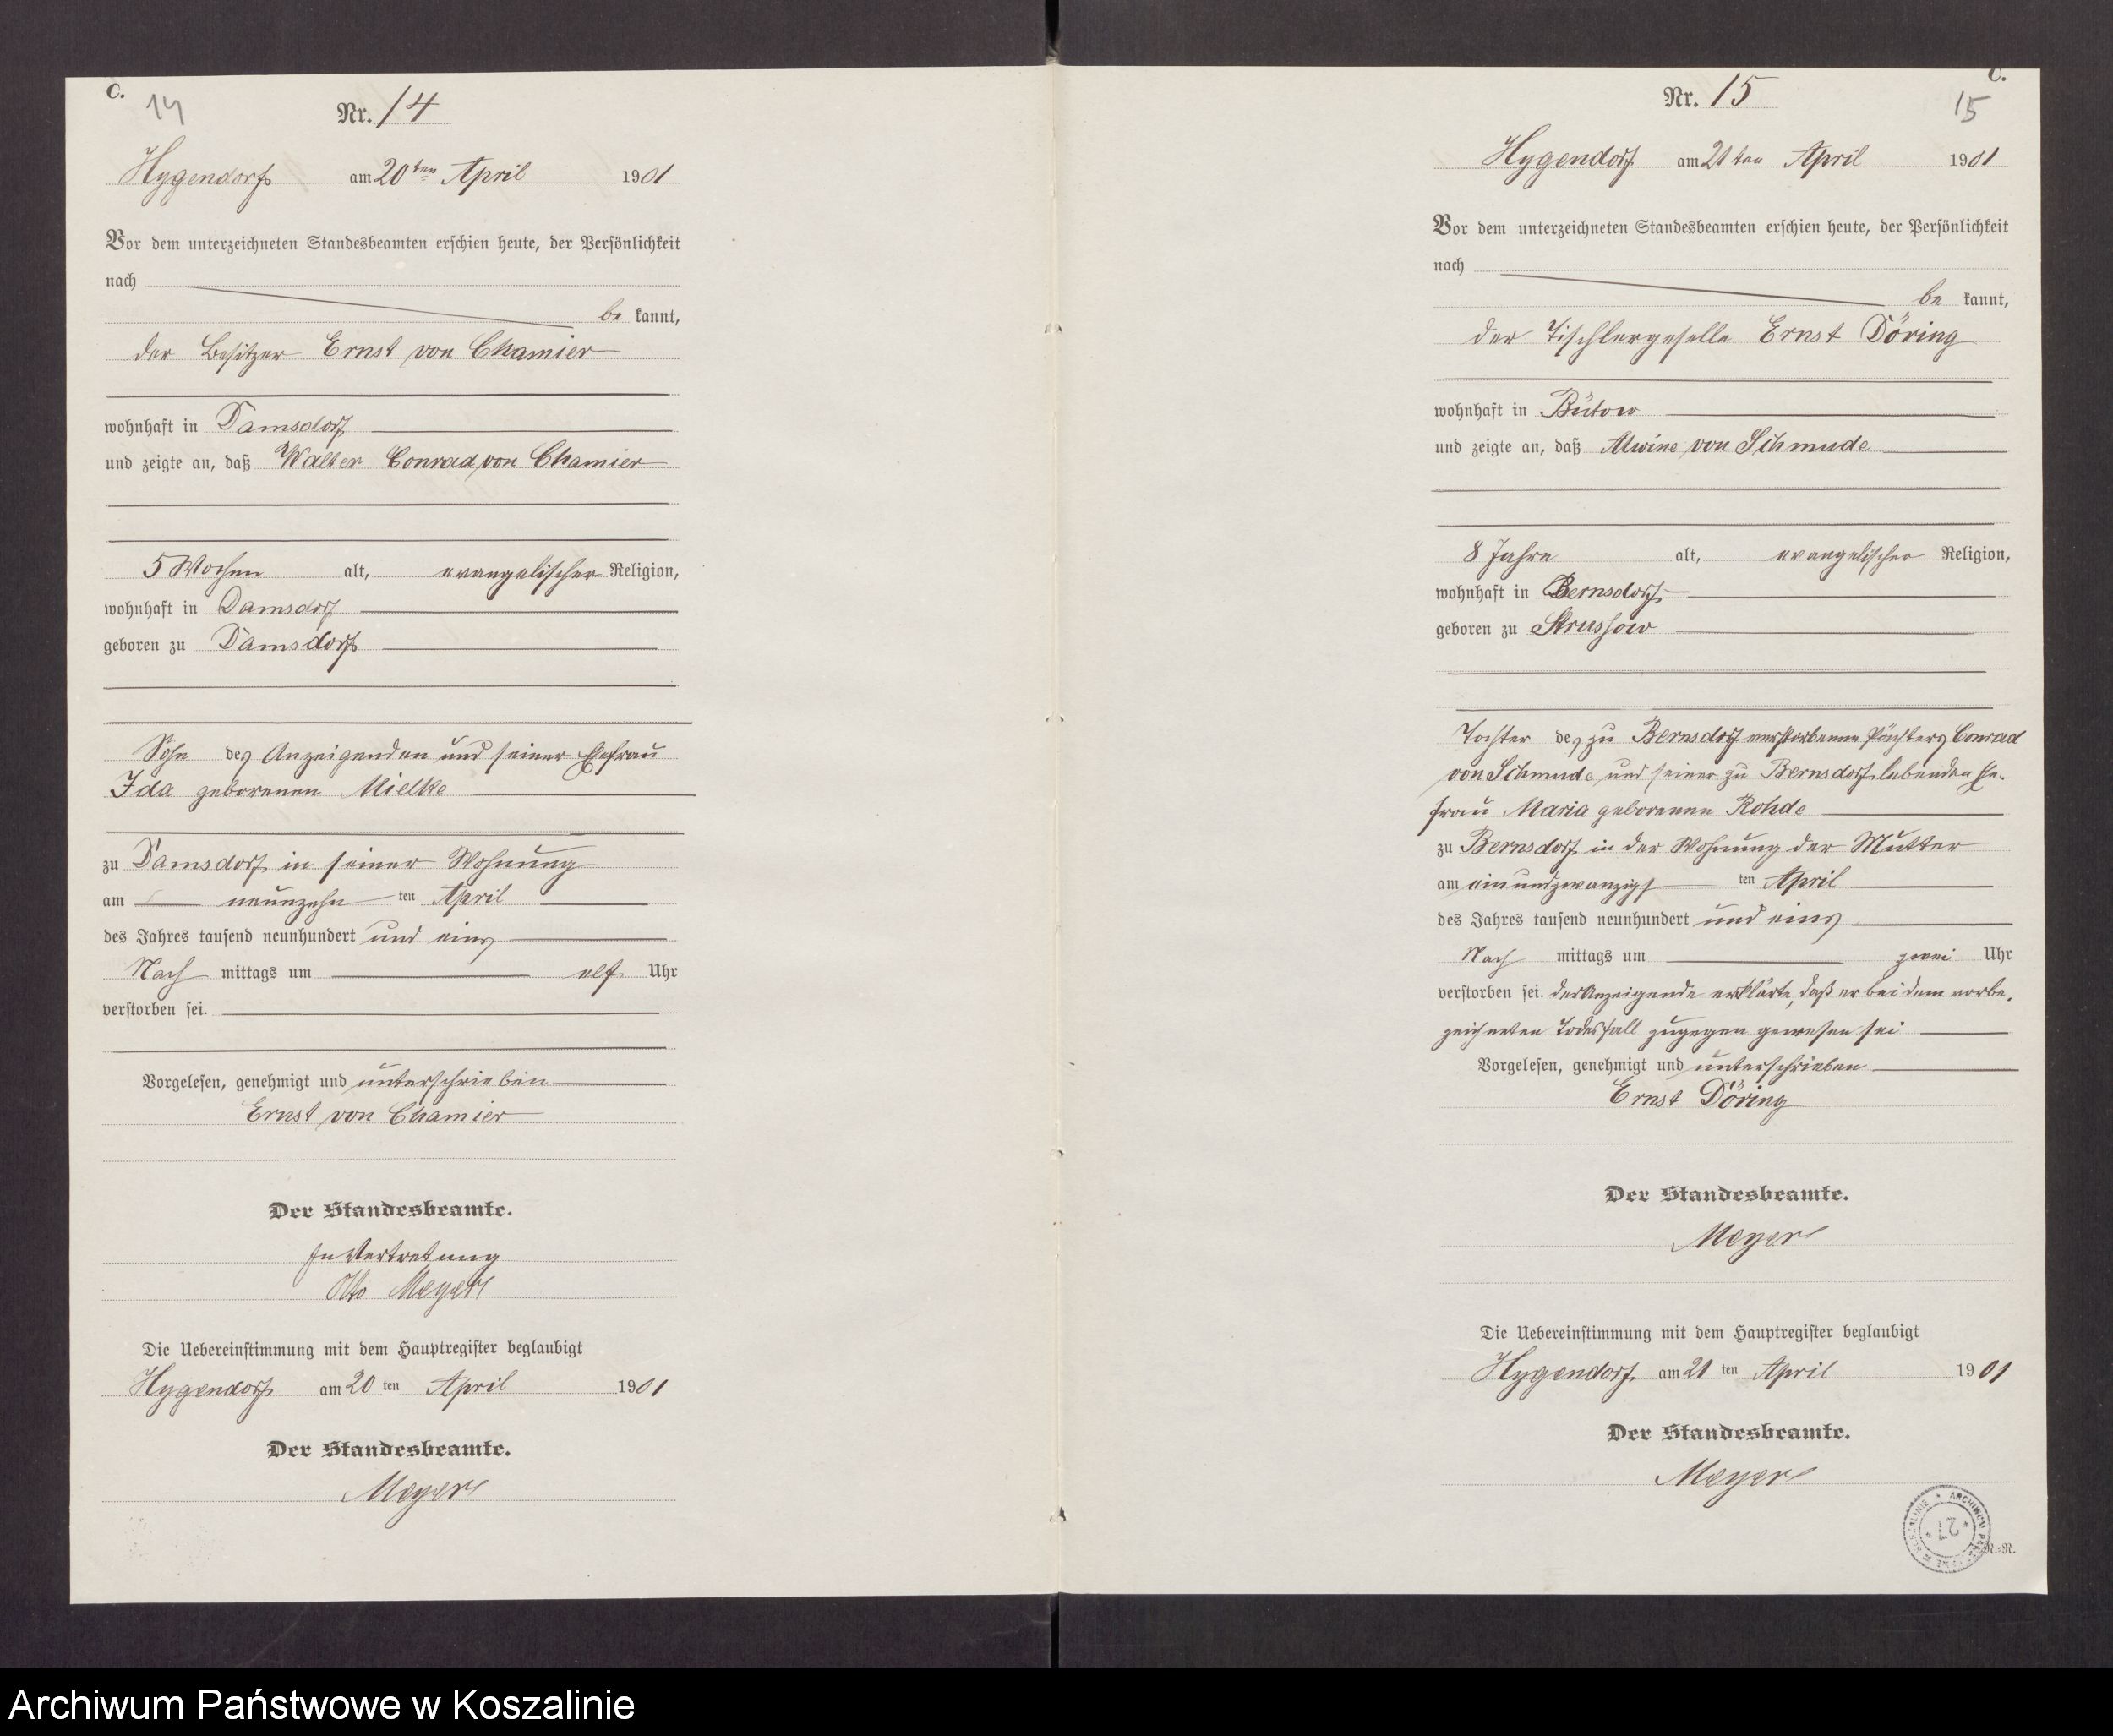 C.
14
Nr. 14
Hygendorf am 20ten April 1901
Vor dem unterzeichneten Standesbeamten erschien heute, der Persönlichkeit
nach
be kannt,
der Besitzer Ernst von Chamier
wohnhaft in Damsdorf
und zeigte an, daß Walter Conrad von Chamier
5 Wochen alt, evangelischer Religion,
wohnhaft in Damsdorf
geboren zu Damsdorf
Sohn des Anzeigenden und seiner Ehefrau
Ida geborenen Mielke
zu Damsdorf in seiner Wohnung
am neunzehn ten April
des Jahres tausend neunhundert und eins
Nach mittags um elf Uhr
verstorben sei.
Vorgelesen, genehmigt und unterschrieben
Ernst von Chamier
Der Standesbeamte.
In Vertretung
Otto Meyer
Die Uebereinstimmung mit dem Hauptregister beglaubigt
Hygendorf am 20 ten April 1901
Der Standesbeamte.
Meyer
C.
15
Nr. 15
Hygendorf am 21ten April 1901
Vor dem unterzeichneten Standesbeamten erschien heute, der Persönlichkeit
nach
be kannt,
der Tischlergeselle Ernst Döring
wohnhaft in Bütow
und zeigte an, daß Alwine von Schmude
8 Jahre alt, evangelischer Religion,
wohnhaft in Bernsdorf
geboren zu Strussow
Tochter des zu Bernsdorf verstorbenen Pächters Conrad
von Schmude und seiner zu Bernsdorf lebenden Ehe-
frau Maria geborenen Rohde
zu Bernsdorf in der Wohnung der Mutter
am einundzwanzigst ten April
des Jahres tausend neunhundert und eins
Nach mittags um zwei Uhr
verstorben sei. Der Anzeigende erklärte, daß er bei dem vorbe-
zeichneten Todesfall zugegen gewesen sei
Vorgelesen, genehmigt und unterschrieben
Ernst Döring
Der Standesbeamte.
Meyer
Die Uebereinstimmung mit dem Hauptregister beglaubigt
Hygendorf am 21 ten April 1901
Der Standesbeamte.
Meyer
27
Archiwum Państwowe w Koszalinie